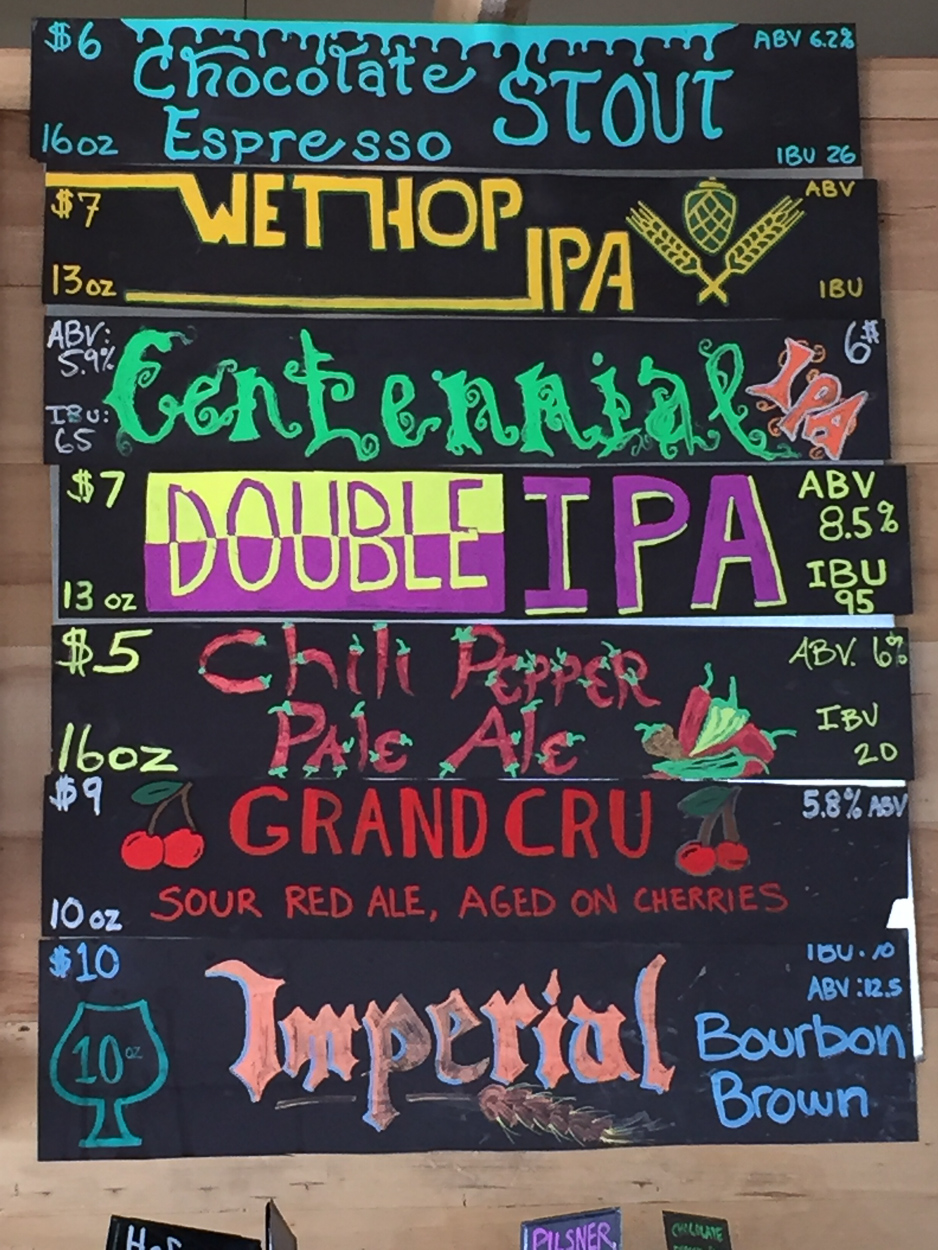 $6
Chocolate
Espresso
STOUT
ABV 6.2%
16oz
IBU 26
$7
WET HOP
IPA
ABV
13oz
IBU
ABV:
5.9%
IBU:
65
Centennial
IPA
6$
$7
DOUBLE IPA
ABV
8.5%
13 oz
IBU
95
$5
Chili Pepper
Pale Ale
ABV. 6%
16oz
IBU
20
$9
GRAND CRU
5.8% ABV
10 oz
SOUR RED ALE, AGED ON CHERRIES
$10
10oz
Imperial
IBU.
ABV:12.5
Bourbon
Brown
PILSNER
CHOCOLATE